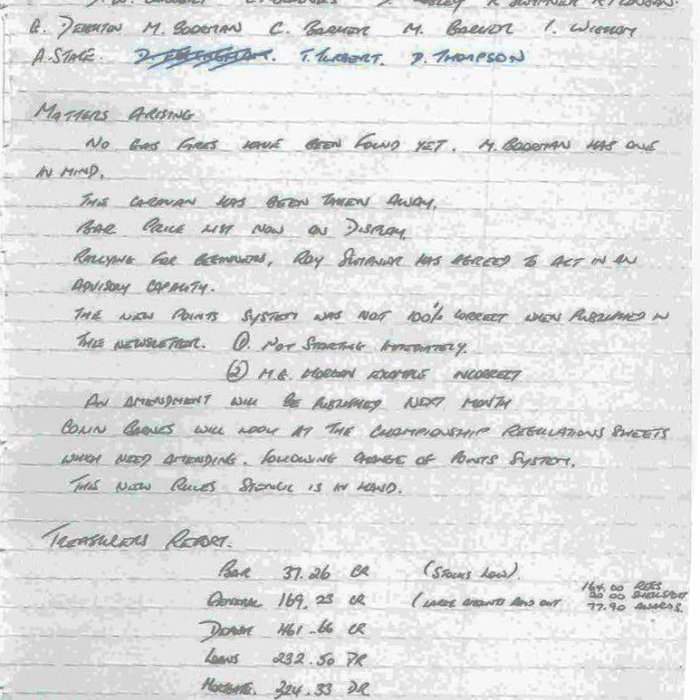 E. DEIGHTON M. BOORMAN C. BARKER M. BARKER I.
A. STAGE. T. P. THOMPSON
MATTERS ARISING
NO GAS FIRES HAVE BEEN FOUND YET. M. BOORMAN HAS ONE
IN MIND.
THE CARAVAN HAS BEEN TAKEN AWAY.
BAR PRICE LIST NOW ON DISPLAY
RALLYING FOR BEGINNERS, ROY HAS AGREED TO ACT IN AN
ADVISORY CAPACITY.
THE NEW POINTS SYSTEM WAS NOT 100% CORRECT WHEN PUBLISHED IN
THE NEWSLETTER. ① NOT STARTING IMMEDIATELY.
② M.G. MORGAN EXAMPLE INCORRECT
AN AMENDMENT WILL BE PUBLISHED NEXT MONTH
COLIN WILL LOOK AT THE CHAMPIONSHIP REGULATIONS SHEETS
WHICH NEED AMENDING. FOLLOWING CHANGE OF POINTS SYSTEM.
THE NEW RULES STENCIL IS IN HAND.
TREASURERS REPORT.
BAR 37.26 CR (STOCKS LOW).
GENERAL 169.23 CR (LARGE AMOUNTS PAID OUT 164.00
77.90 AWARDS.
461.66 CR
LOANS 232.50 DR
MORTGAGE. 324.33 DR